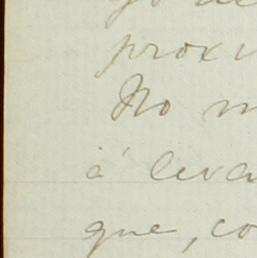 proxi
No m
à leva
que, co